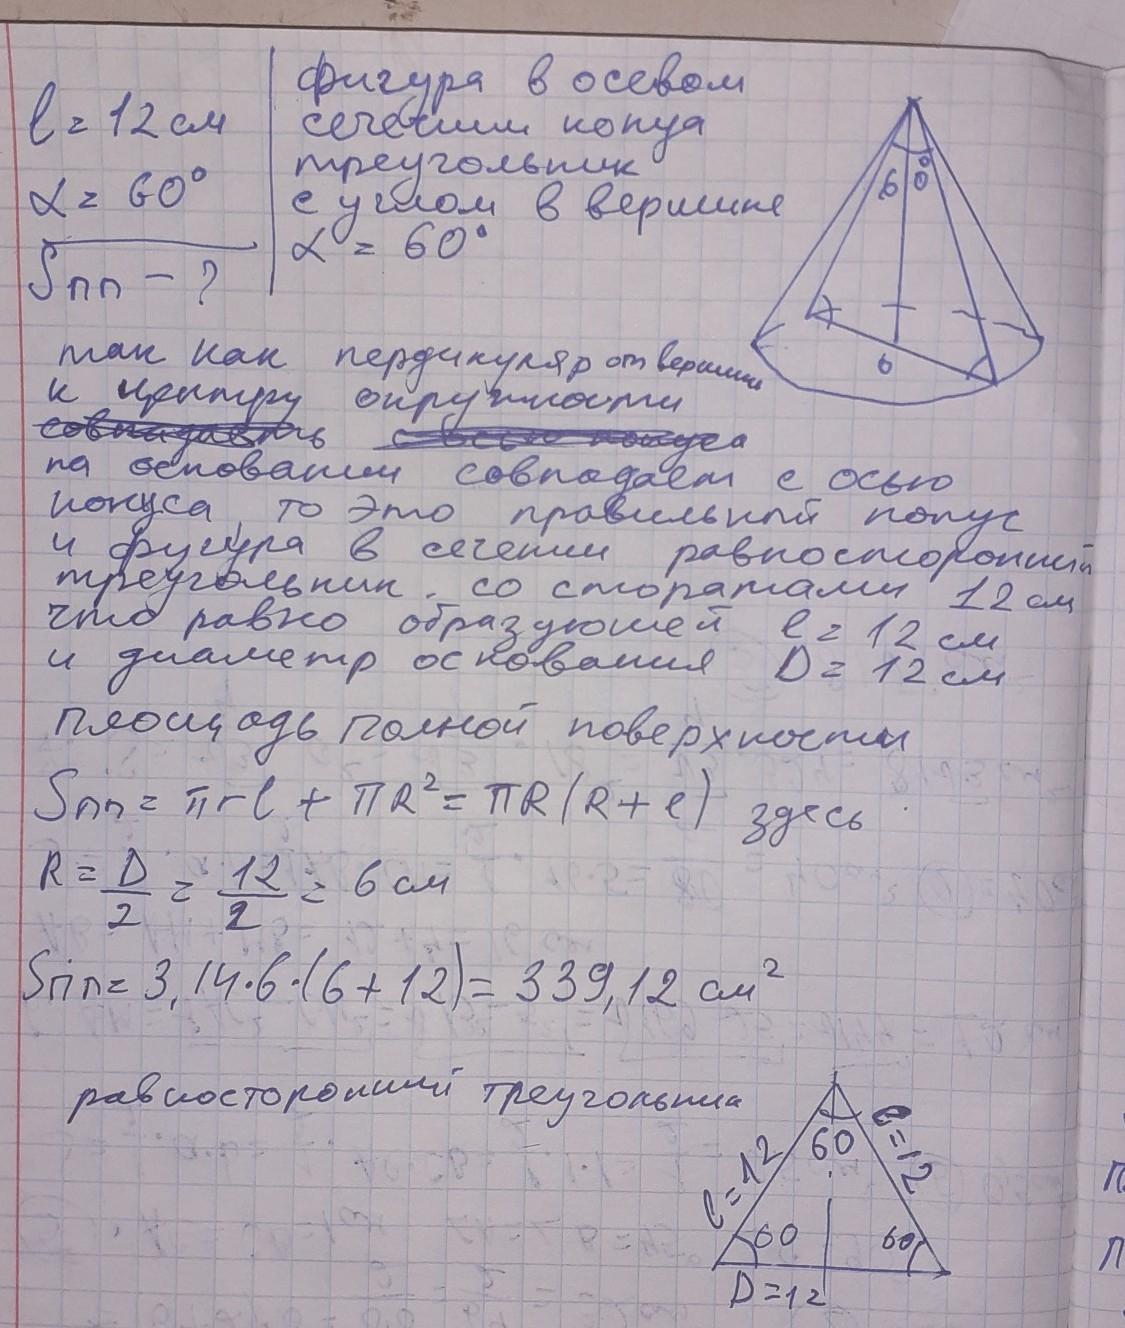 l = 12 см
α = 60°
Sпп - ?
фигура в осевом
сечении конуа
треугольник
с углом в вершине
α = 60°
60°
6
так как пердикуляр от вершини
к центру окружности
на основании совпадает с осью
конуса, то это правильний конус
и фигура в сечении равносторонний
треугольник. со сторатами 12 см
что равно образуюшей l = 12 см
и диаметр основания D = 12 см
площадь полной поверхности
Sпп = πrl + πR² = πR(R + l) здесь
R = D/2 = 12/2 = 6 см
Sпп = 3,14·6·(6 + 12) = 339,12 см²
равносторонний треугольник
60
l = 12
l = 12
60
60
D = 12